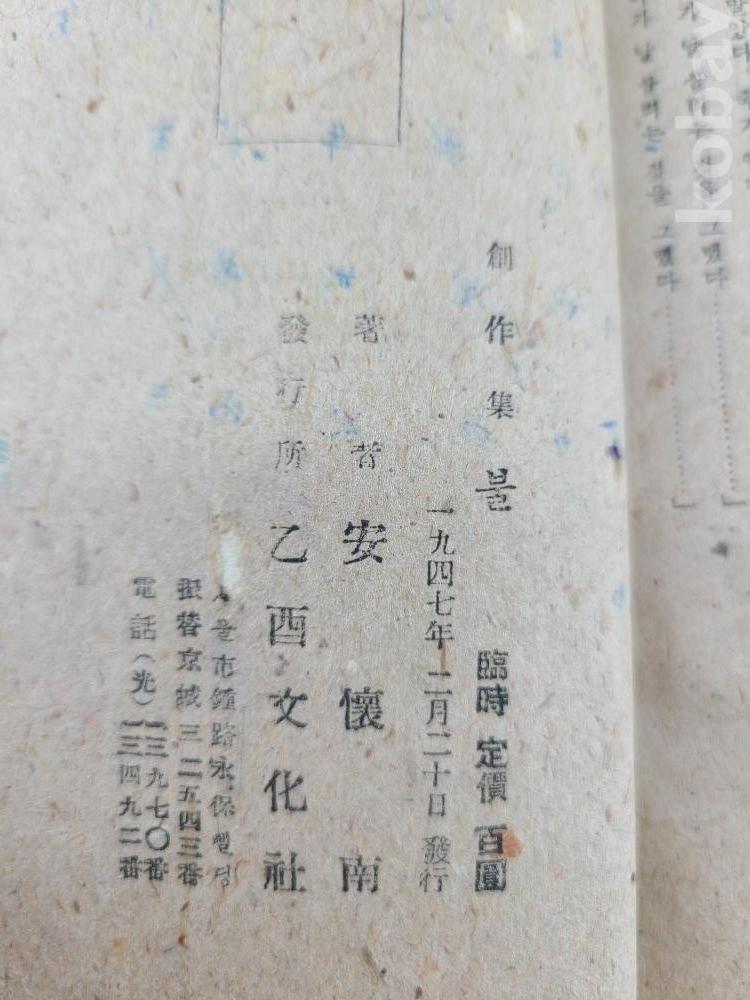 創作集 불 臨時 定價 百圓
一九四七年 二月二十日 發行
著者 安懷南
發行所 乙酉文化社
서울市鍾路永保삘딩
振替京城三二五四三番
電話(光)
一三九七〇番
一三四九二番
그랬다
그랬다
kobay